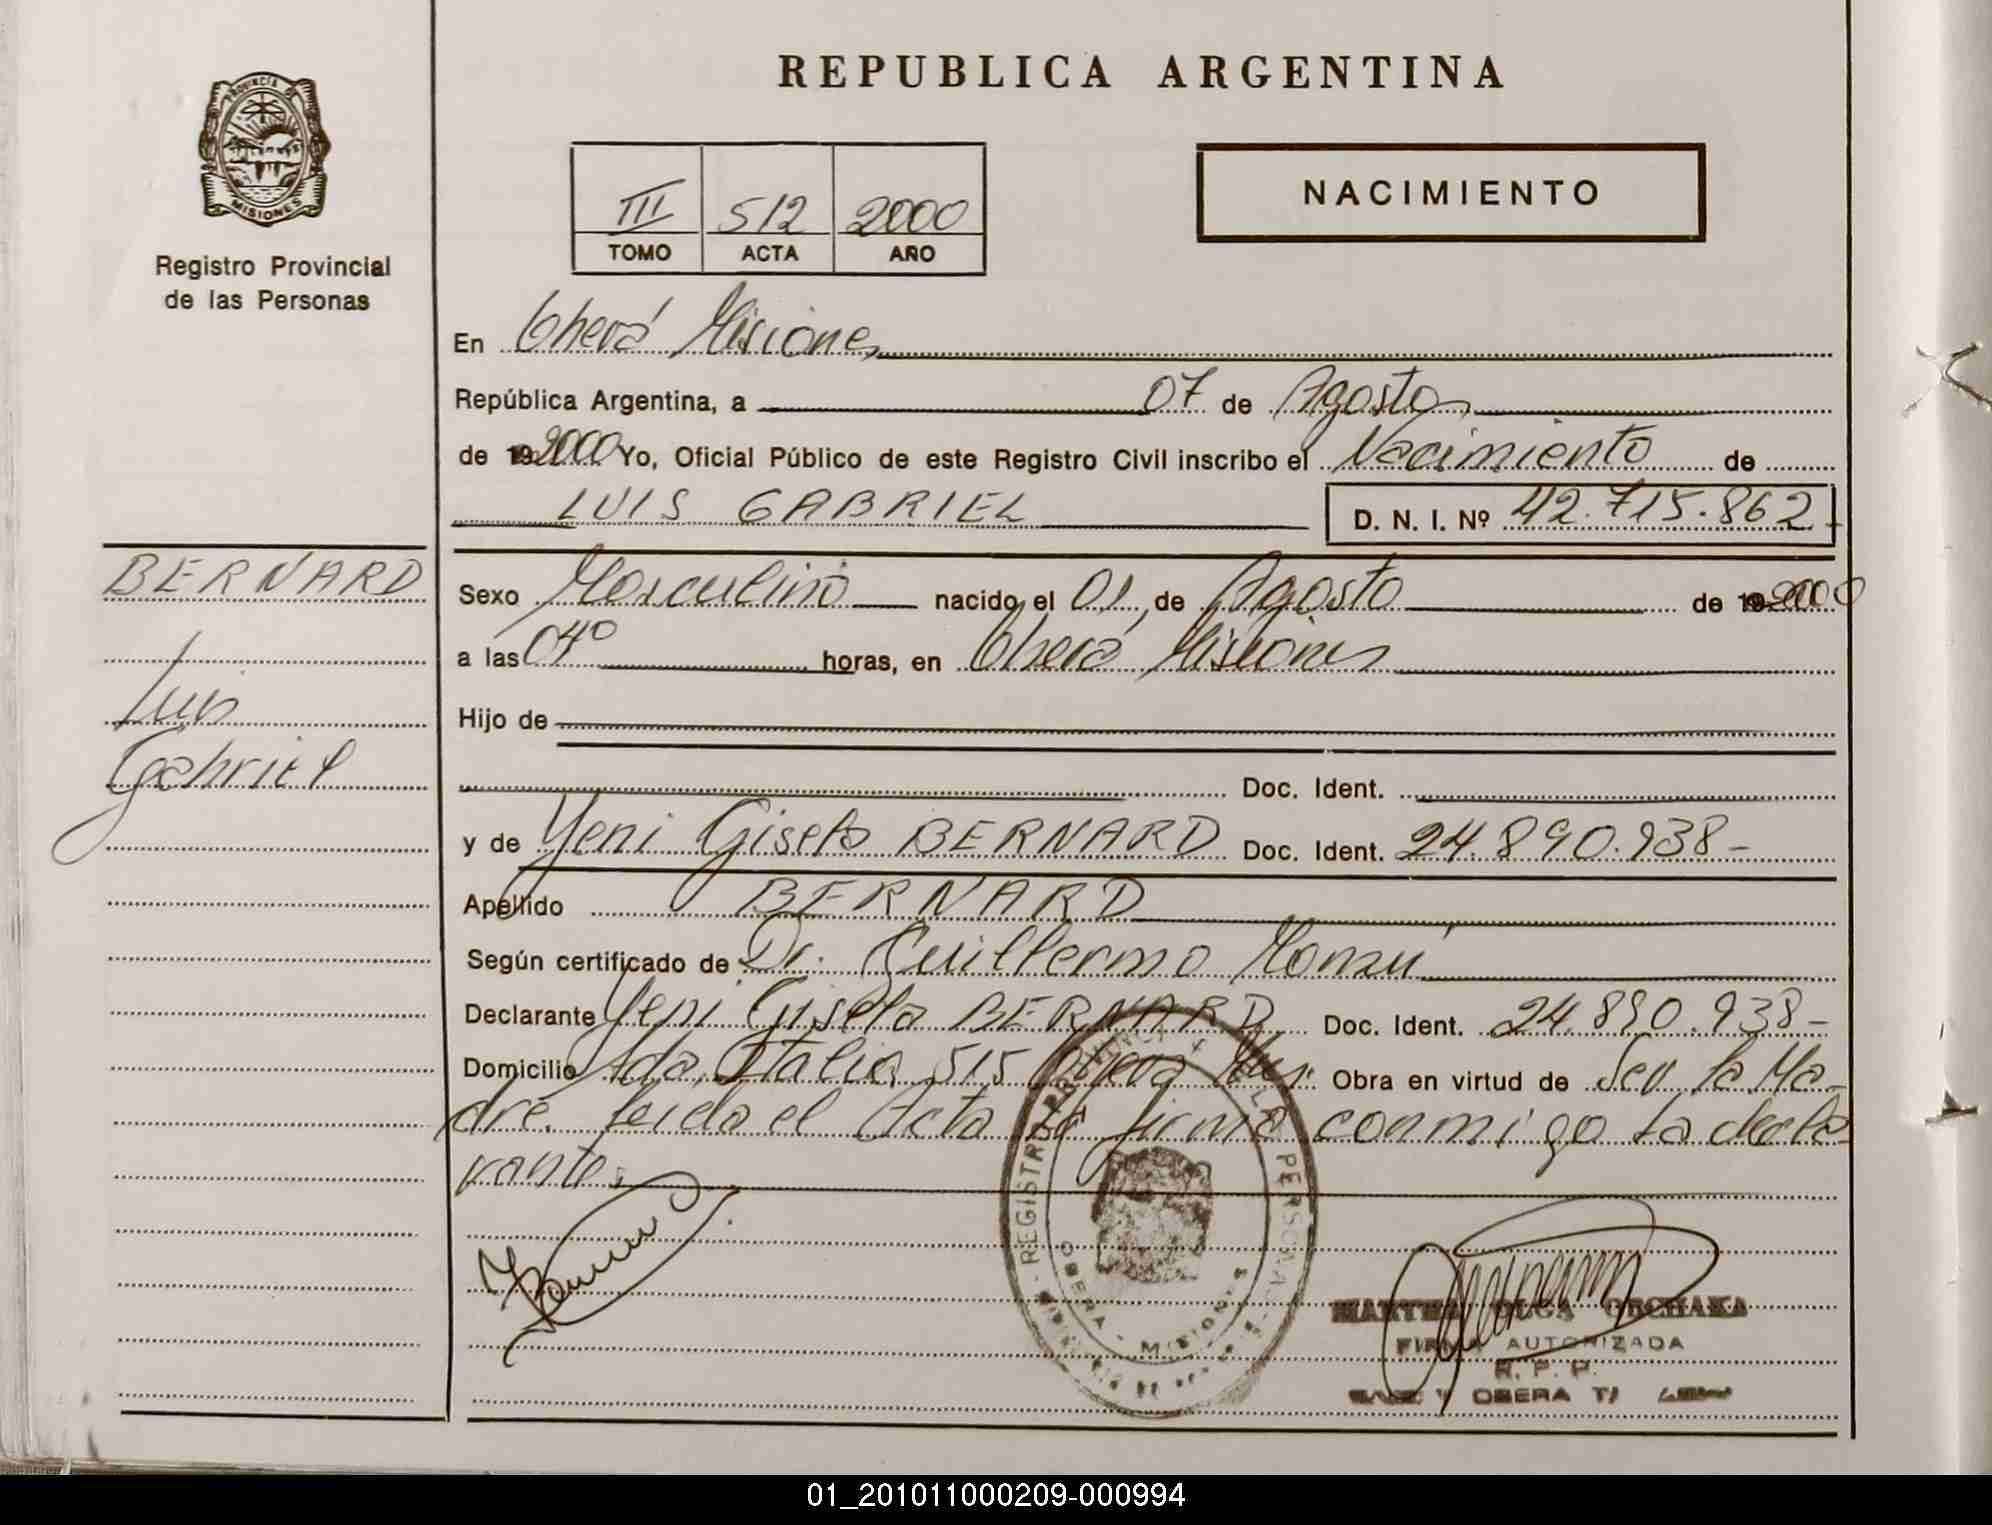 PROVINCIA DE
MISIONES
Registro Provincial
de las Personas
BERNARD
Luis
Gabriel
REPUBLICA ARGENTINA
III 512 2000
TOMO ACTA AÑO
NACIMIENTO
En Oberá Misiones
República Argentina, a 07 de Agosto
de 19 2000 Yo, Oficial Público de este Registro Civil inscribo el Nacimiento de
LUIS GABRIEL D. N. I. Nº 42.715.862-
Sexo Masculino nacido el 01 de Agosto de 19 2000
a las 04º horas, en Oberá Misiones
Hijo de
Doc. Ident.
y de Yeni Gisela BERNARD Doc. Ident. 24.890.938-
Apellido BERNARD
Según certificado de Dr. Guillermo
Declarante Yeni Gisela BERNARD Doc. Ident. 24.890.938-
Domicilio Avda. Italia 515 Oberá Mnes. Obra en virtud de Ser la Ma-
dre. Leida el Acta la firma conmigo la decla-
rante.
REGISTRO PROVINCIAL DE LAS PERSONAS
OBERA - MISIONES
FIRMA AUTORIZADA
R. P. P.
OBERA
01_201011000209-000994